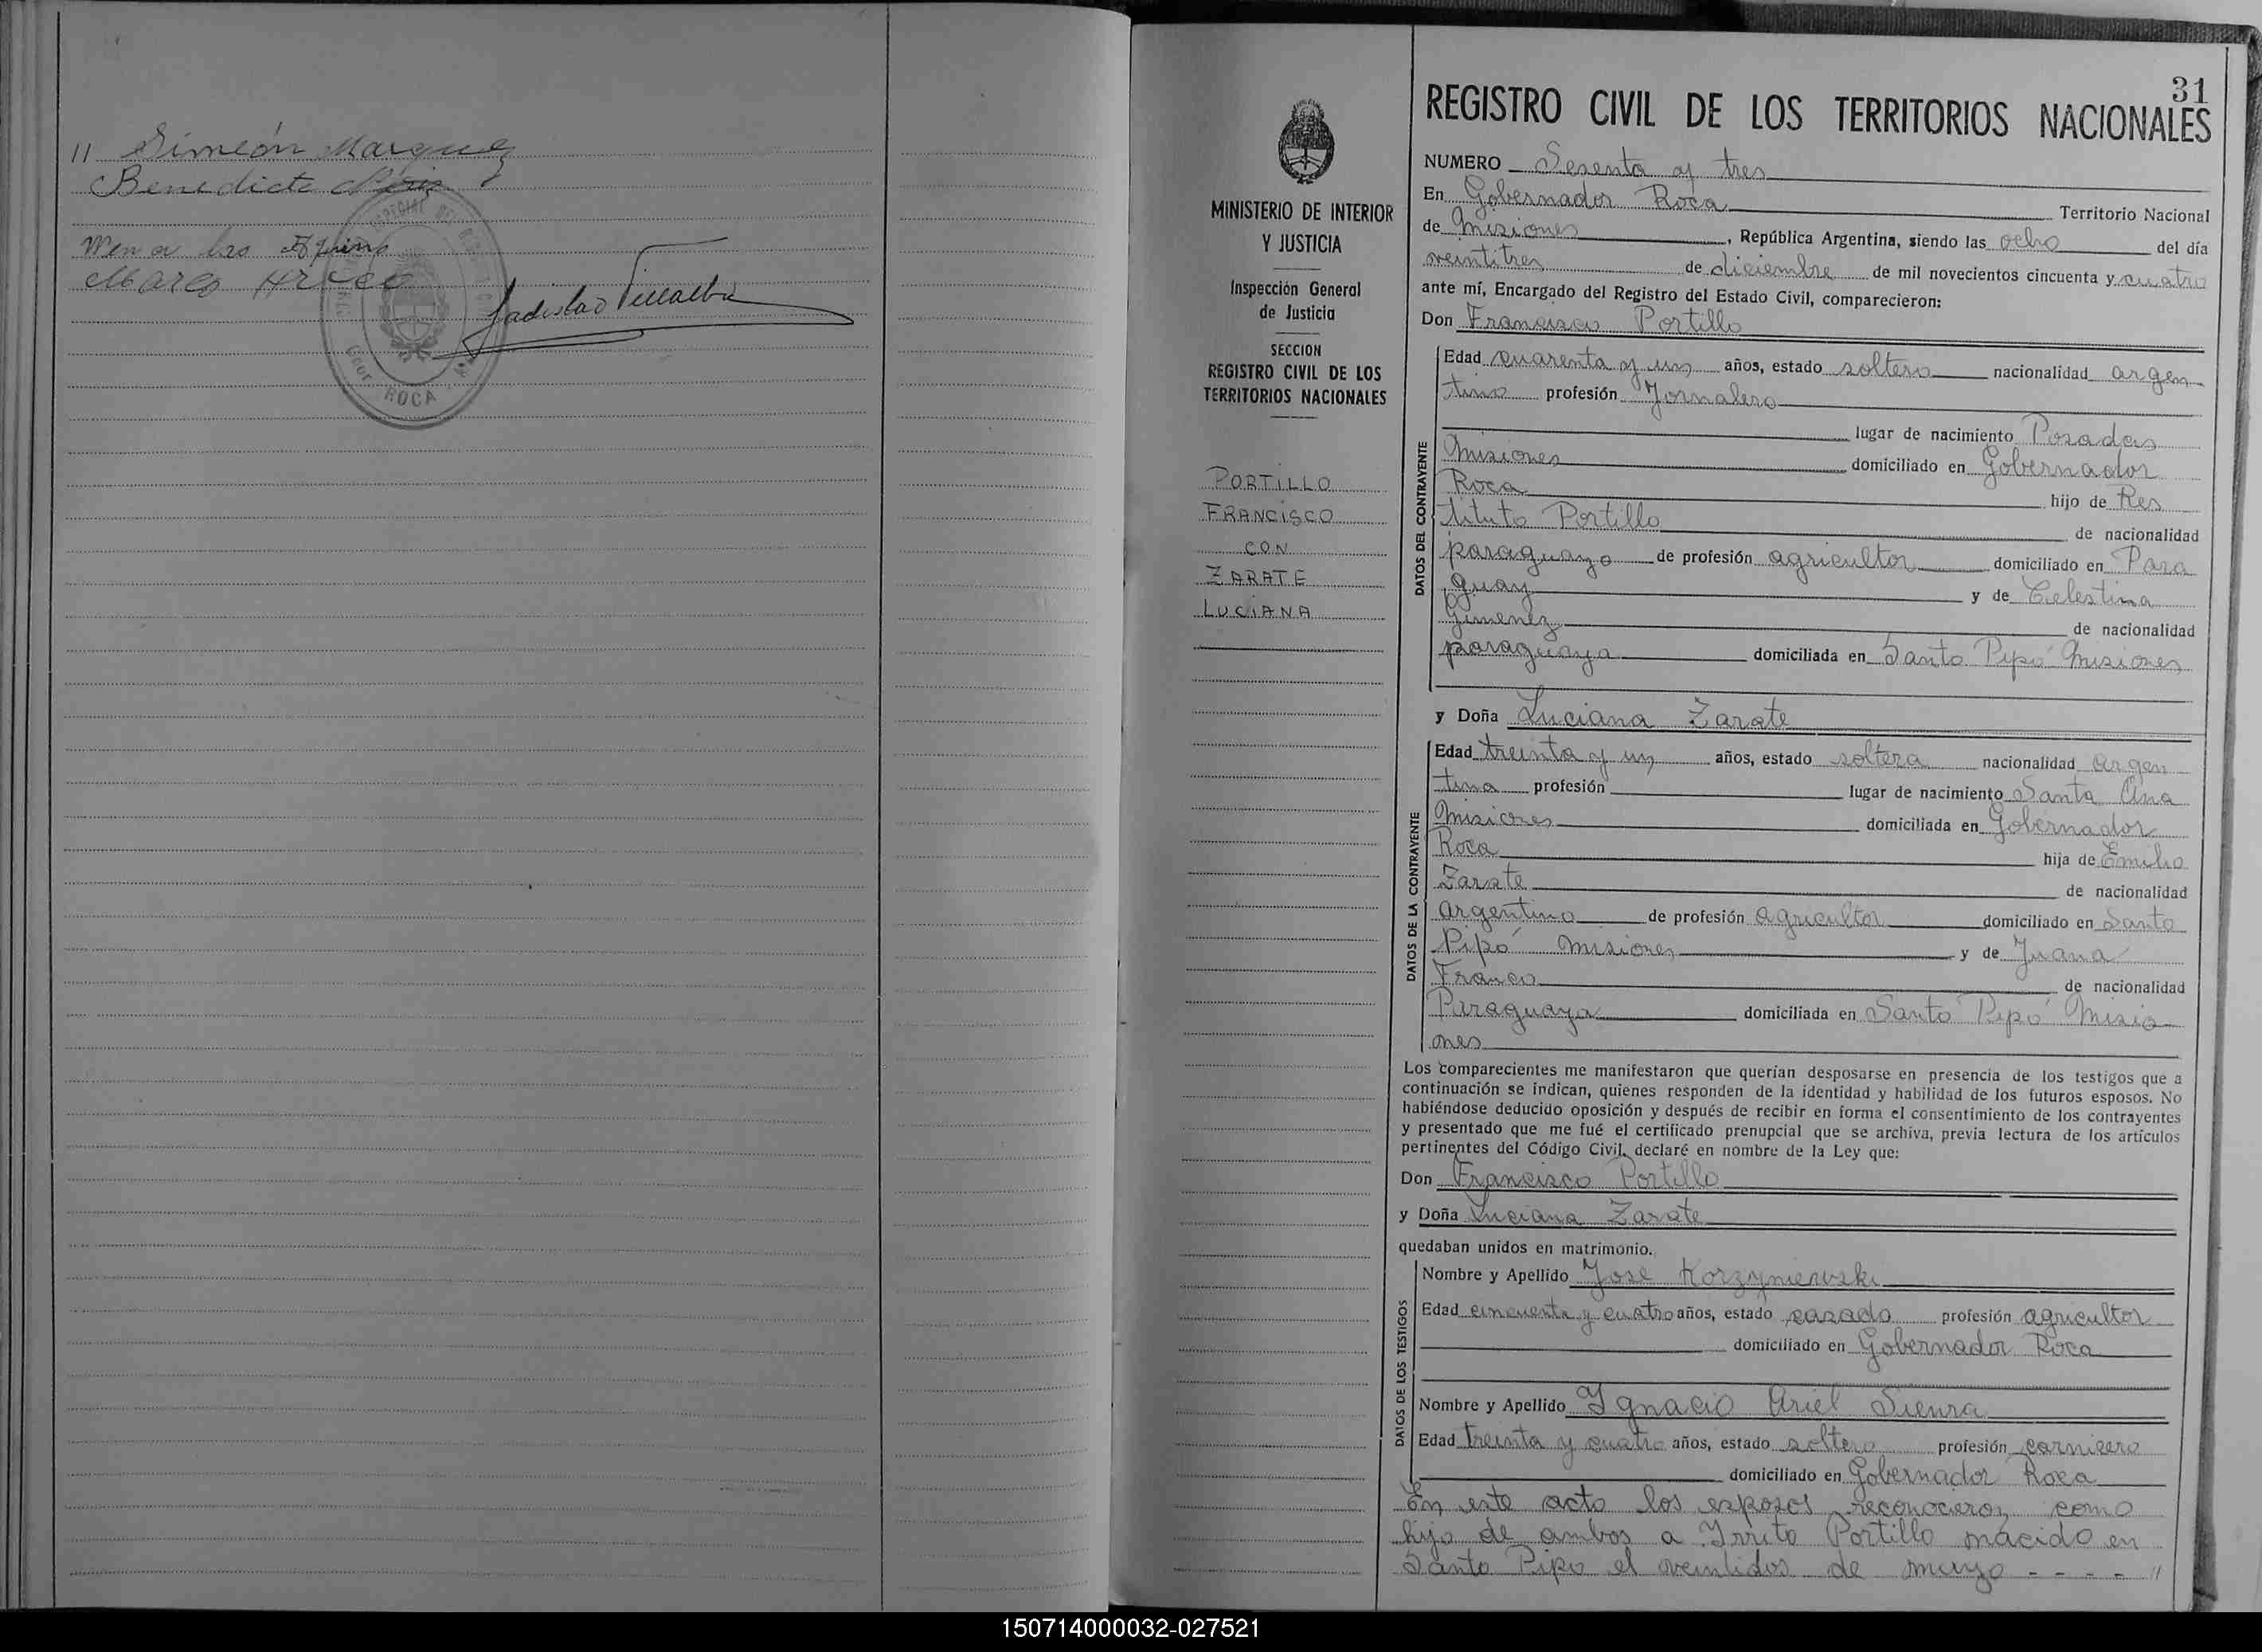 11 Simeón Marquez
Benedicta
Marcos
Ladislao Villalba
Gdor ROCA
31
REGISTRO CIVIL DE LOS TERRITORIOS NACIONALES
MINISTERIO DE INTERIOR
Y JUSTICIA
Inspección General
de Justicia
SECCION
REGISTRO CIVIL DE LOS
TERRITORIOS NACIONALES
PORTILLO
FRANCISCO
CON
ZARATE
LUCIANA
NUMERO Sesenta y tres
En Gobernador Roca Territorio Nacional
de Misiones, República Argentina, siendo las ocho del día
veintitres de diciembre de mil novecientos cincuenta y cuatro
ante mí, Encargado del Registro del Estado Civil, comparecieron:
Don Francisco Portillo
DATOS DEL CONTRAYENTE
Edad cuarenta y un años, estado soltero nacionalidad argen
tino profesión Jornalero
lugar de nacimiento Posadas
Misiones domiciliado en Gobernador
Roca hijo de Res
tituto Portillo de nacionalidad
paraguayo de profesión agricultor domiciliado en Para
guay y de Celestina
Gimenez de nacionalidad
paraguaya domiciliada en Santo Pipó Misiones
y Doña Luciana Zarate
DATOS DE LA CONTRAYENTE
Edad treinta y un años, estado soltera nacionalidad argen
tina profesión lugar de nacimiento Santa Ana
Misiones domiciliada en Gobernador
Roca hija de Emilio
Zarate de nacionalidad
argentino de profesión agricultor domiciliado en Santo
Pipó Misiones y de Juana
Franco de nacionalidad
Paraguaya domiciliada en Santo Pipó Misio
nes
Los comparecientes me manifestaron que querían desposarse en presencia de los testigos que a
continuación se indican, quienes responden de la identidad y habilidad de los futuros esposos. No
habiéndose deducido oposición y después de recibir en forma el consentimiento de los contrayentes
y presentado que me fué el certificado prenupcial que se archiva, previa lectura de los artículos
pertinentes del Código Civil, declaré en nombre de la Ley que:
Don Francisco Portillo
y Doña Luciana Zarate
quedaban unidos en matrimonio.
DATOS DE LOS TESTIGOS
Nombre y Apellido José Korzyniewski
Edad cincuenta y cuatro años, estado casado profesión agricultor
domiciliado en Gobernador Roca
Nombre y Apellido Ygnacio Ariel Sienra
Edad treinta y cuatro años, estado soltero profesión carnicero
domiciliado en Gobernador Roca
En este acto los esposos reconocieron como
hijo de ambos a Portillo nacido en
Santo Pipo el veintidos de mayo - - - - //
150714000032-027521